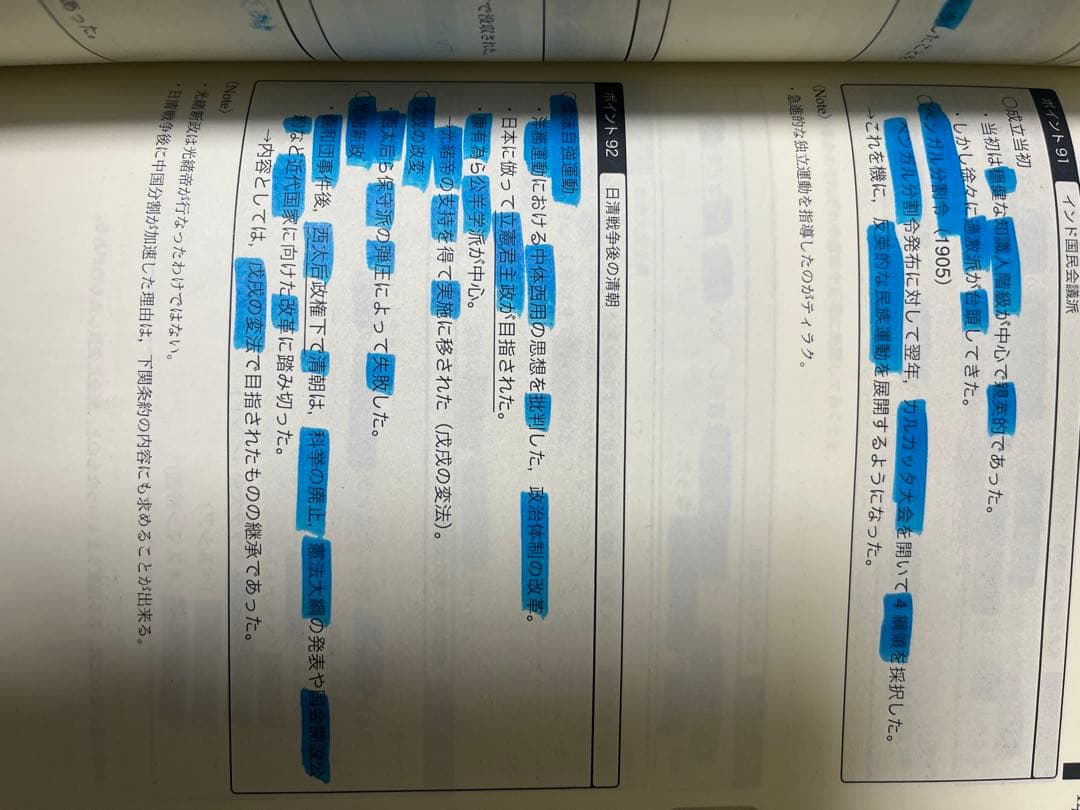 あった。
で没収された
ポイント 91 インド国民会議派
○成立当初
・当初は穏健な知識人階級が中心で親英的であった。
・しかし徐々に過激派が台頭してきた。
○ベンガル分割令（1905）
・ベンガル分割令発布に対して翌年，カルカッタ大会を開いて4綱領を採択した。
→これを機に，反英的な民族運動を展開するようになった。
〈Note〉
・急進的な独立運動を指導したのがティラク。
ポイント 92 日清戦争後の清朝
自強運動
・洋務運動における中体西用の思想を批判した，政治体制の改革。
・日本に倣って立憲君主政が目指された。
・康有為ら公羊学派が中心。
→光緒帝の支持を得て実施に移された（戊戌の変法）。
○戊戌の政変
・西太后ら保守派の弾圧によって失敗した。
○光緒新政
・義和団事件後，西太后政権下で清朝は，科挙の廃止，憲法大綱の発表や国会開設公
約など近代国家に向けた改革に踏み切った。
→内容としては，戊戌の変法で目指されたものの継承であった。
〈Note〉
・光緒新政は光緒帝が行なったわけではない。
・日清戦争後に中国分割が加速した理由は，下関条約の内容にも求めることが出来る。